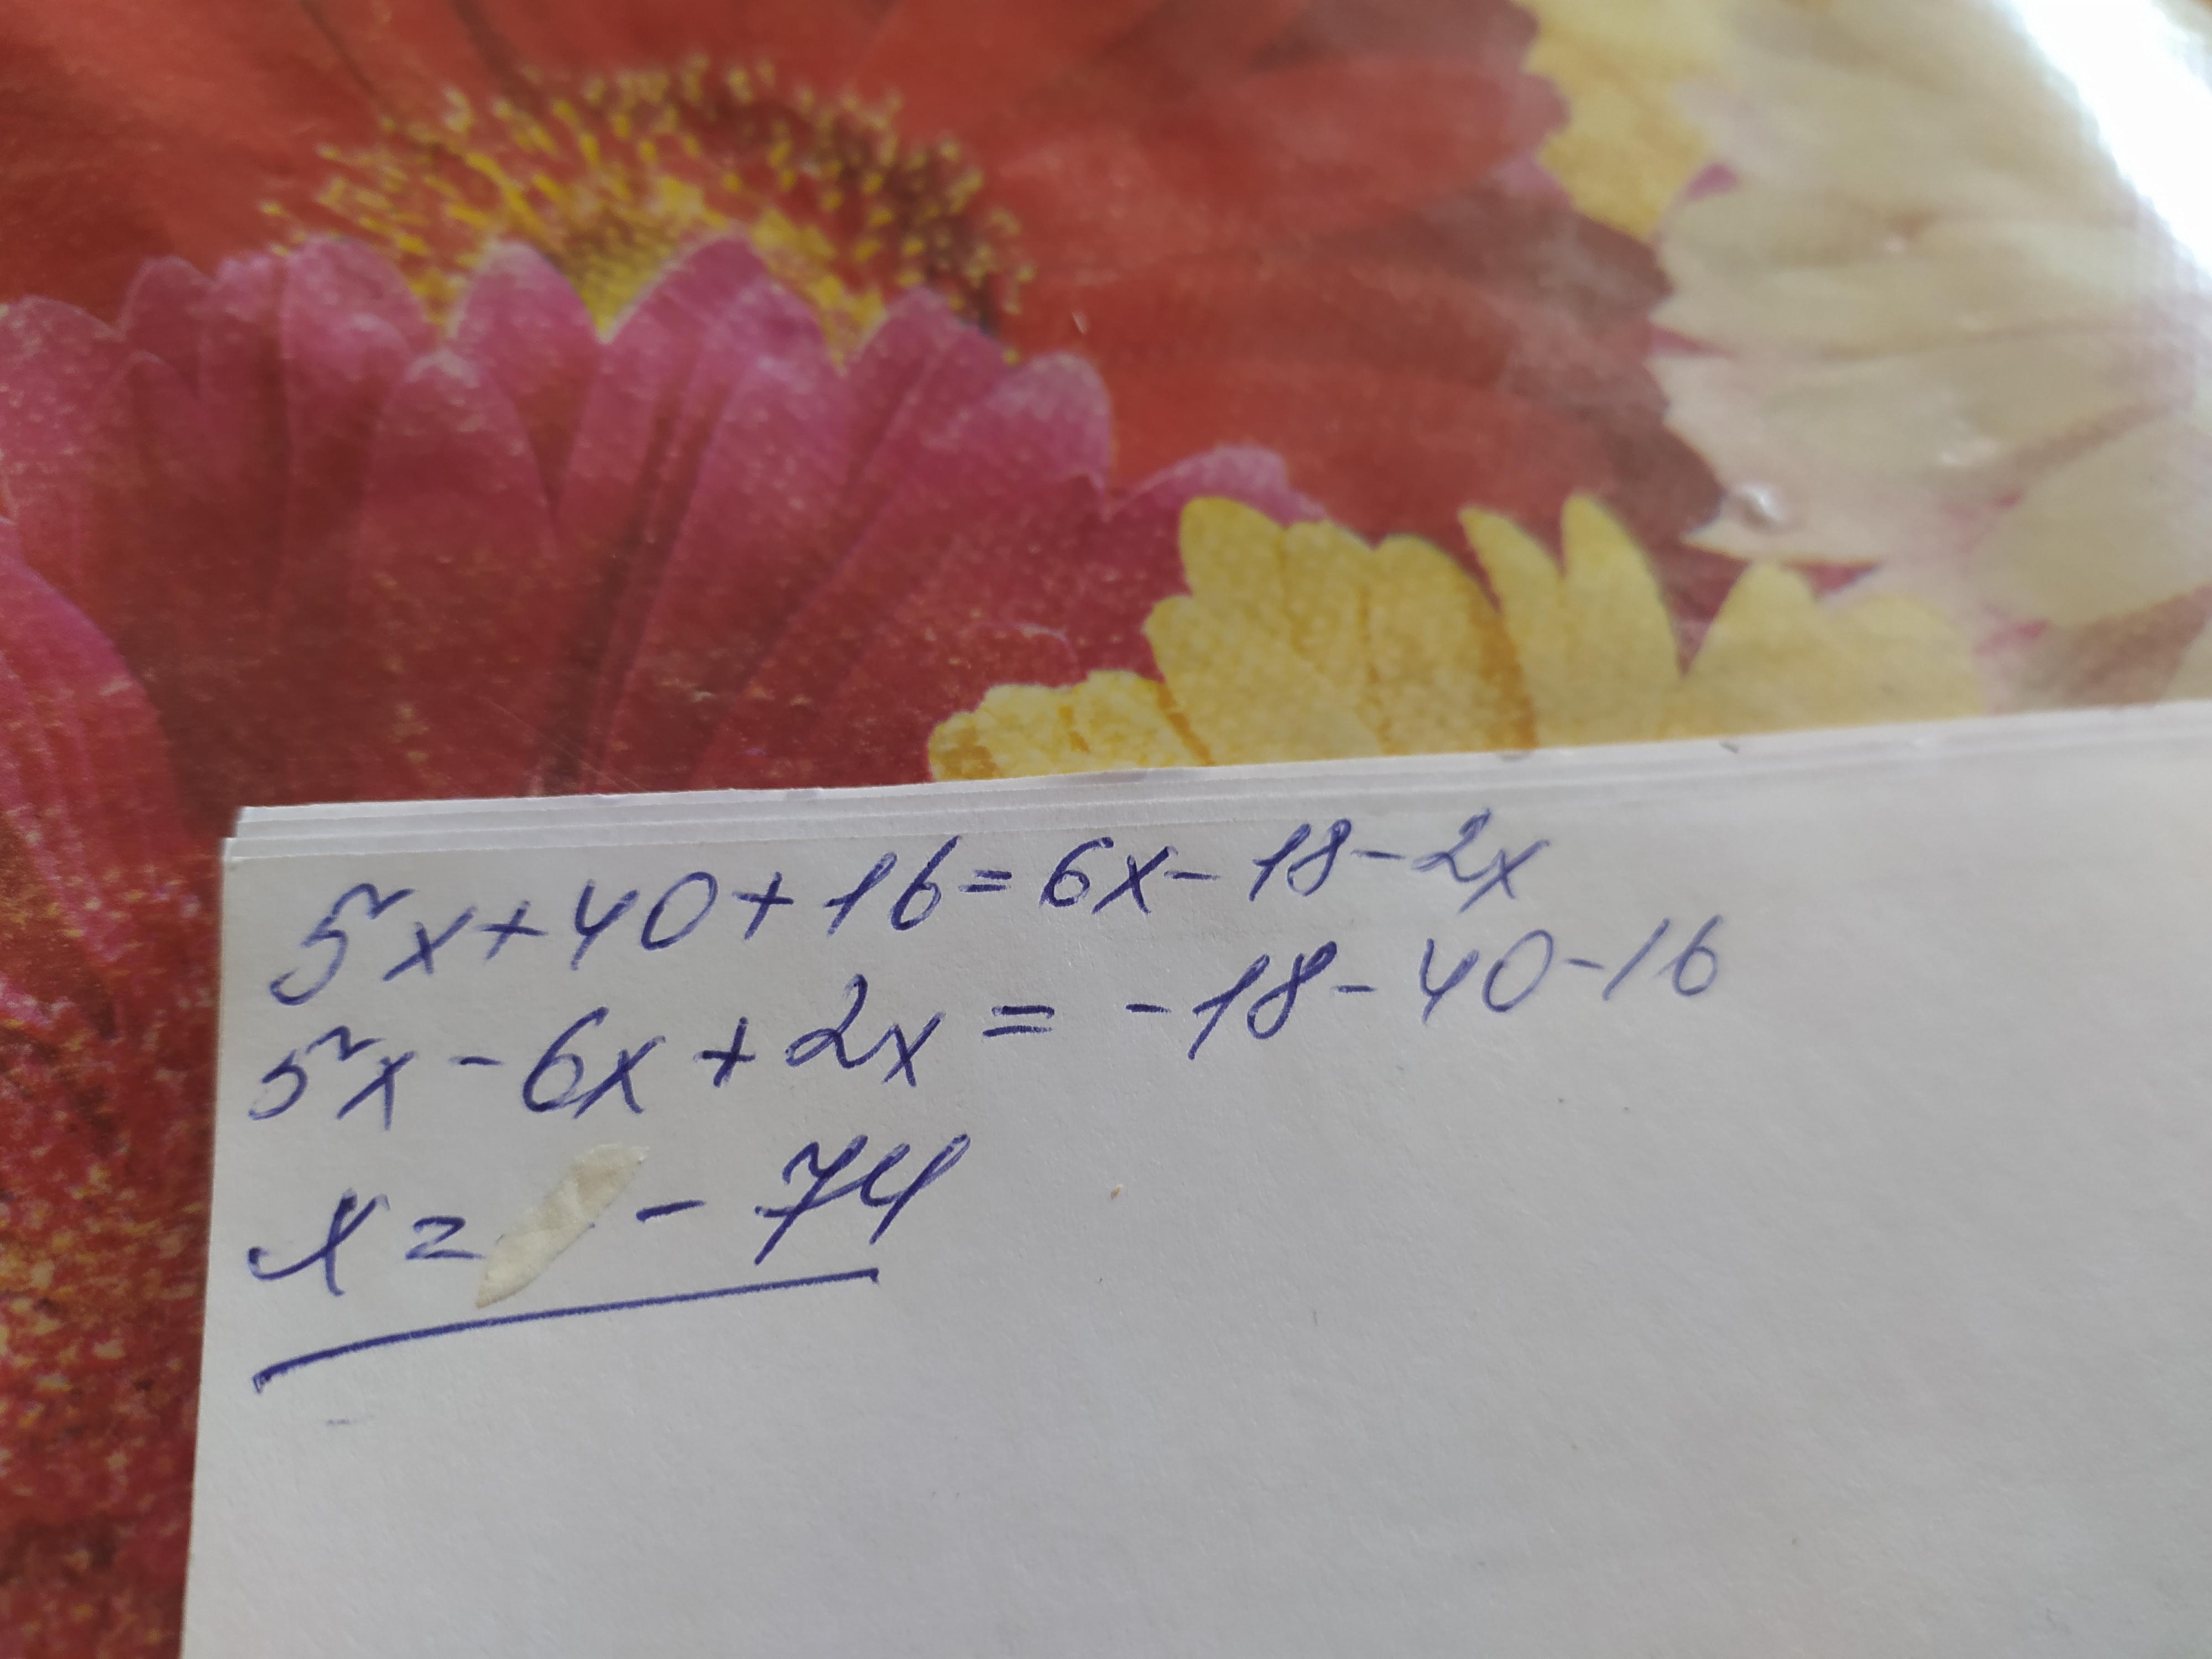 5x+40+16=6x-18-2x
5x-6x+2x=-18-40-16
x= -74